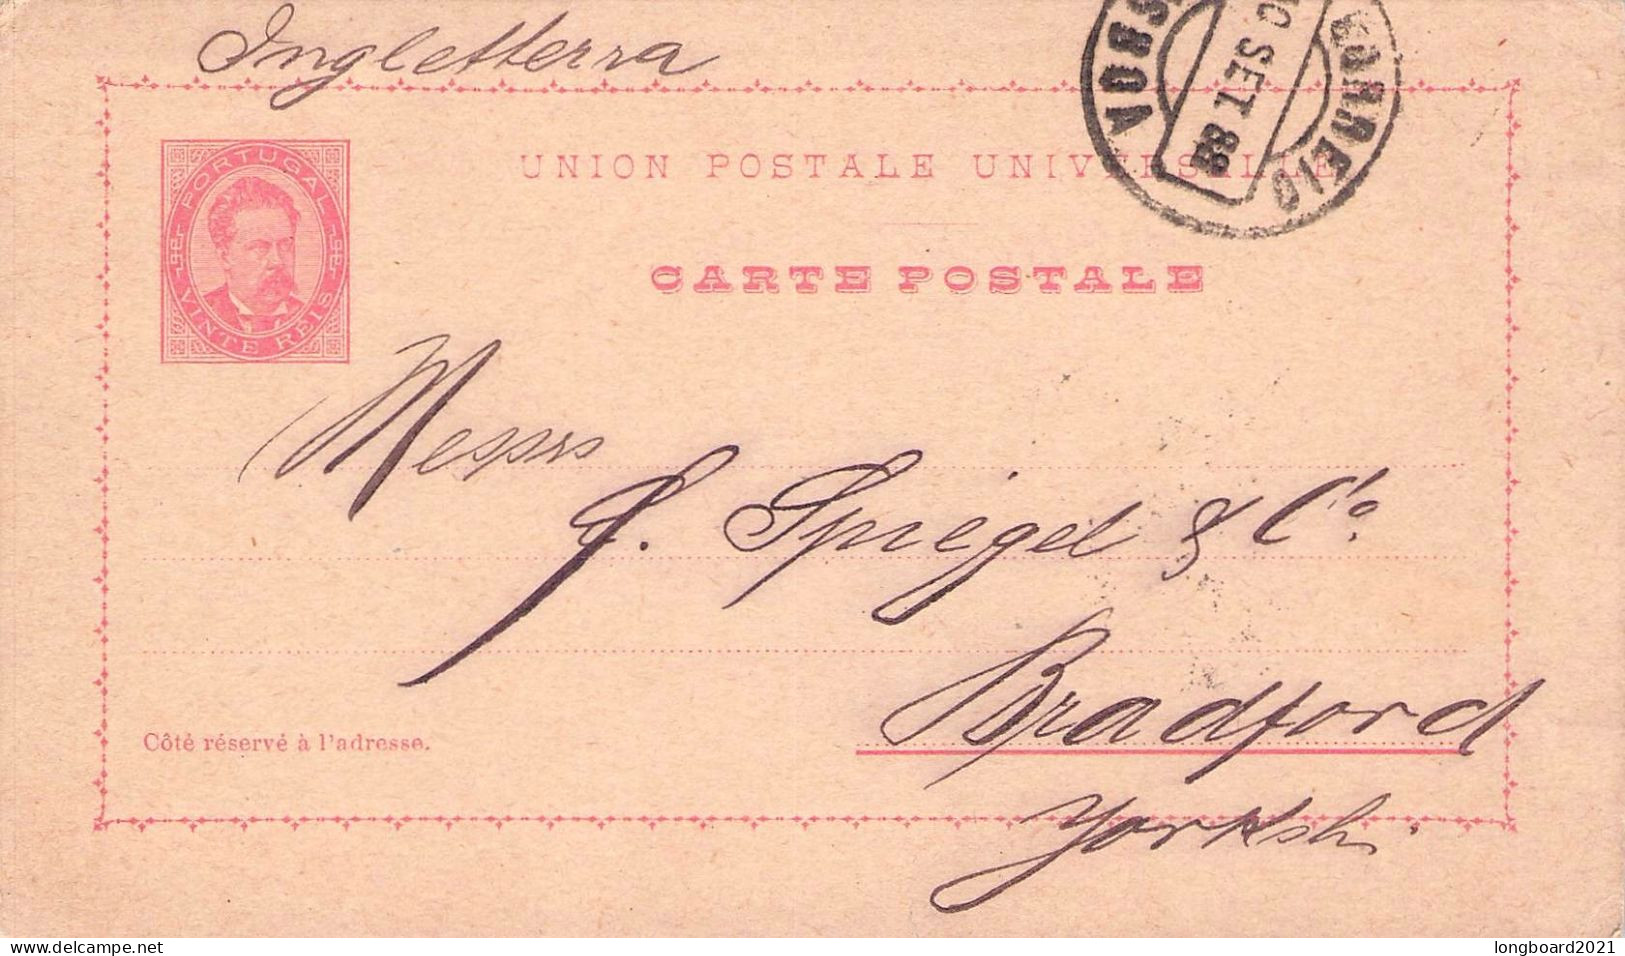 Ingletterra
CORREIO
10 SET. 88
LISBOA
PORTUGAL
VINTE REIS
UNION POSTALE UNIVERSELLE
CARTE POSTALE
Messrs
J. Spiegel & Co.
Bradford
Côté réservé à l'adresse.
Yorksh.
www.delcampe.net
longboard2021